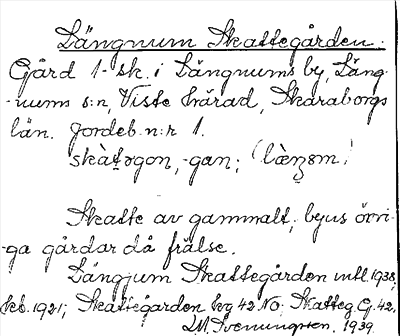 Längnum Skattegården.
Gård 1 sk. i Längnums by, Läng-
-nums s:n, Viste härad, Skaraborgs
län. Jordeb. n:r 1.
skàt̯əgon, -gan; (làenȝəm)
Skatte av gammalt, byns övri-
-ga gårdar då frälse.
Längjum Skattegården mtl. 1938,
1921; Skattegården kg 42 NO; Skatteg. G. 42,
1939